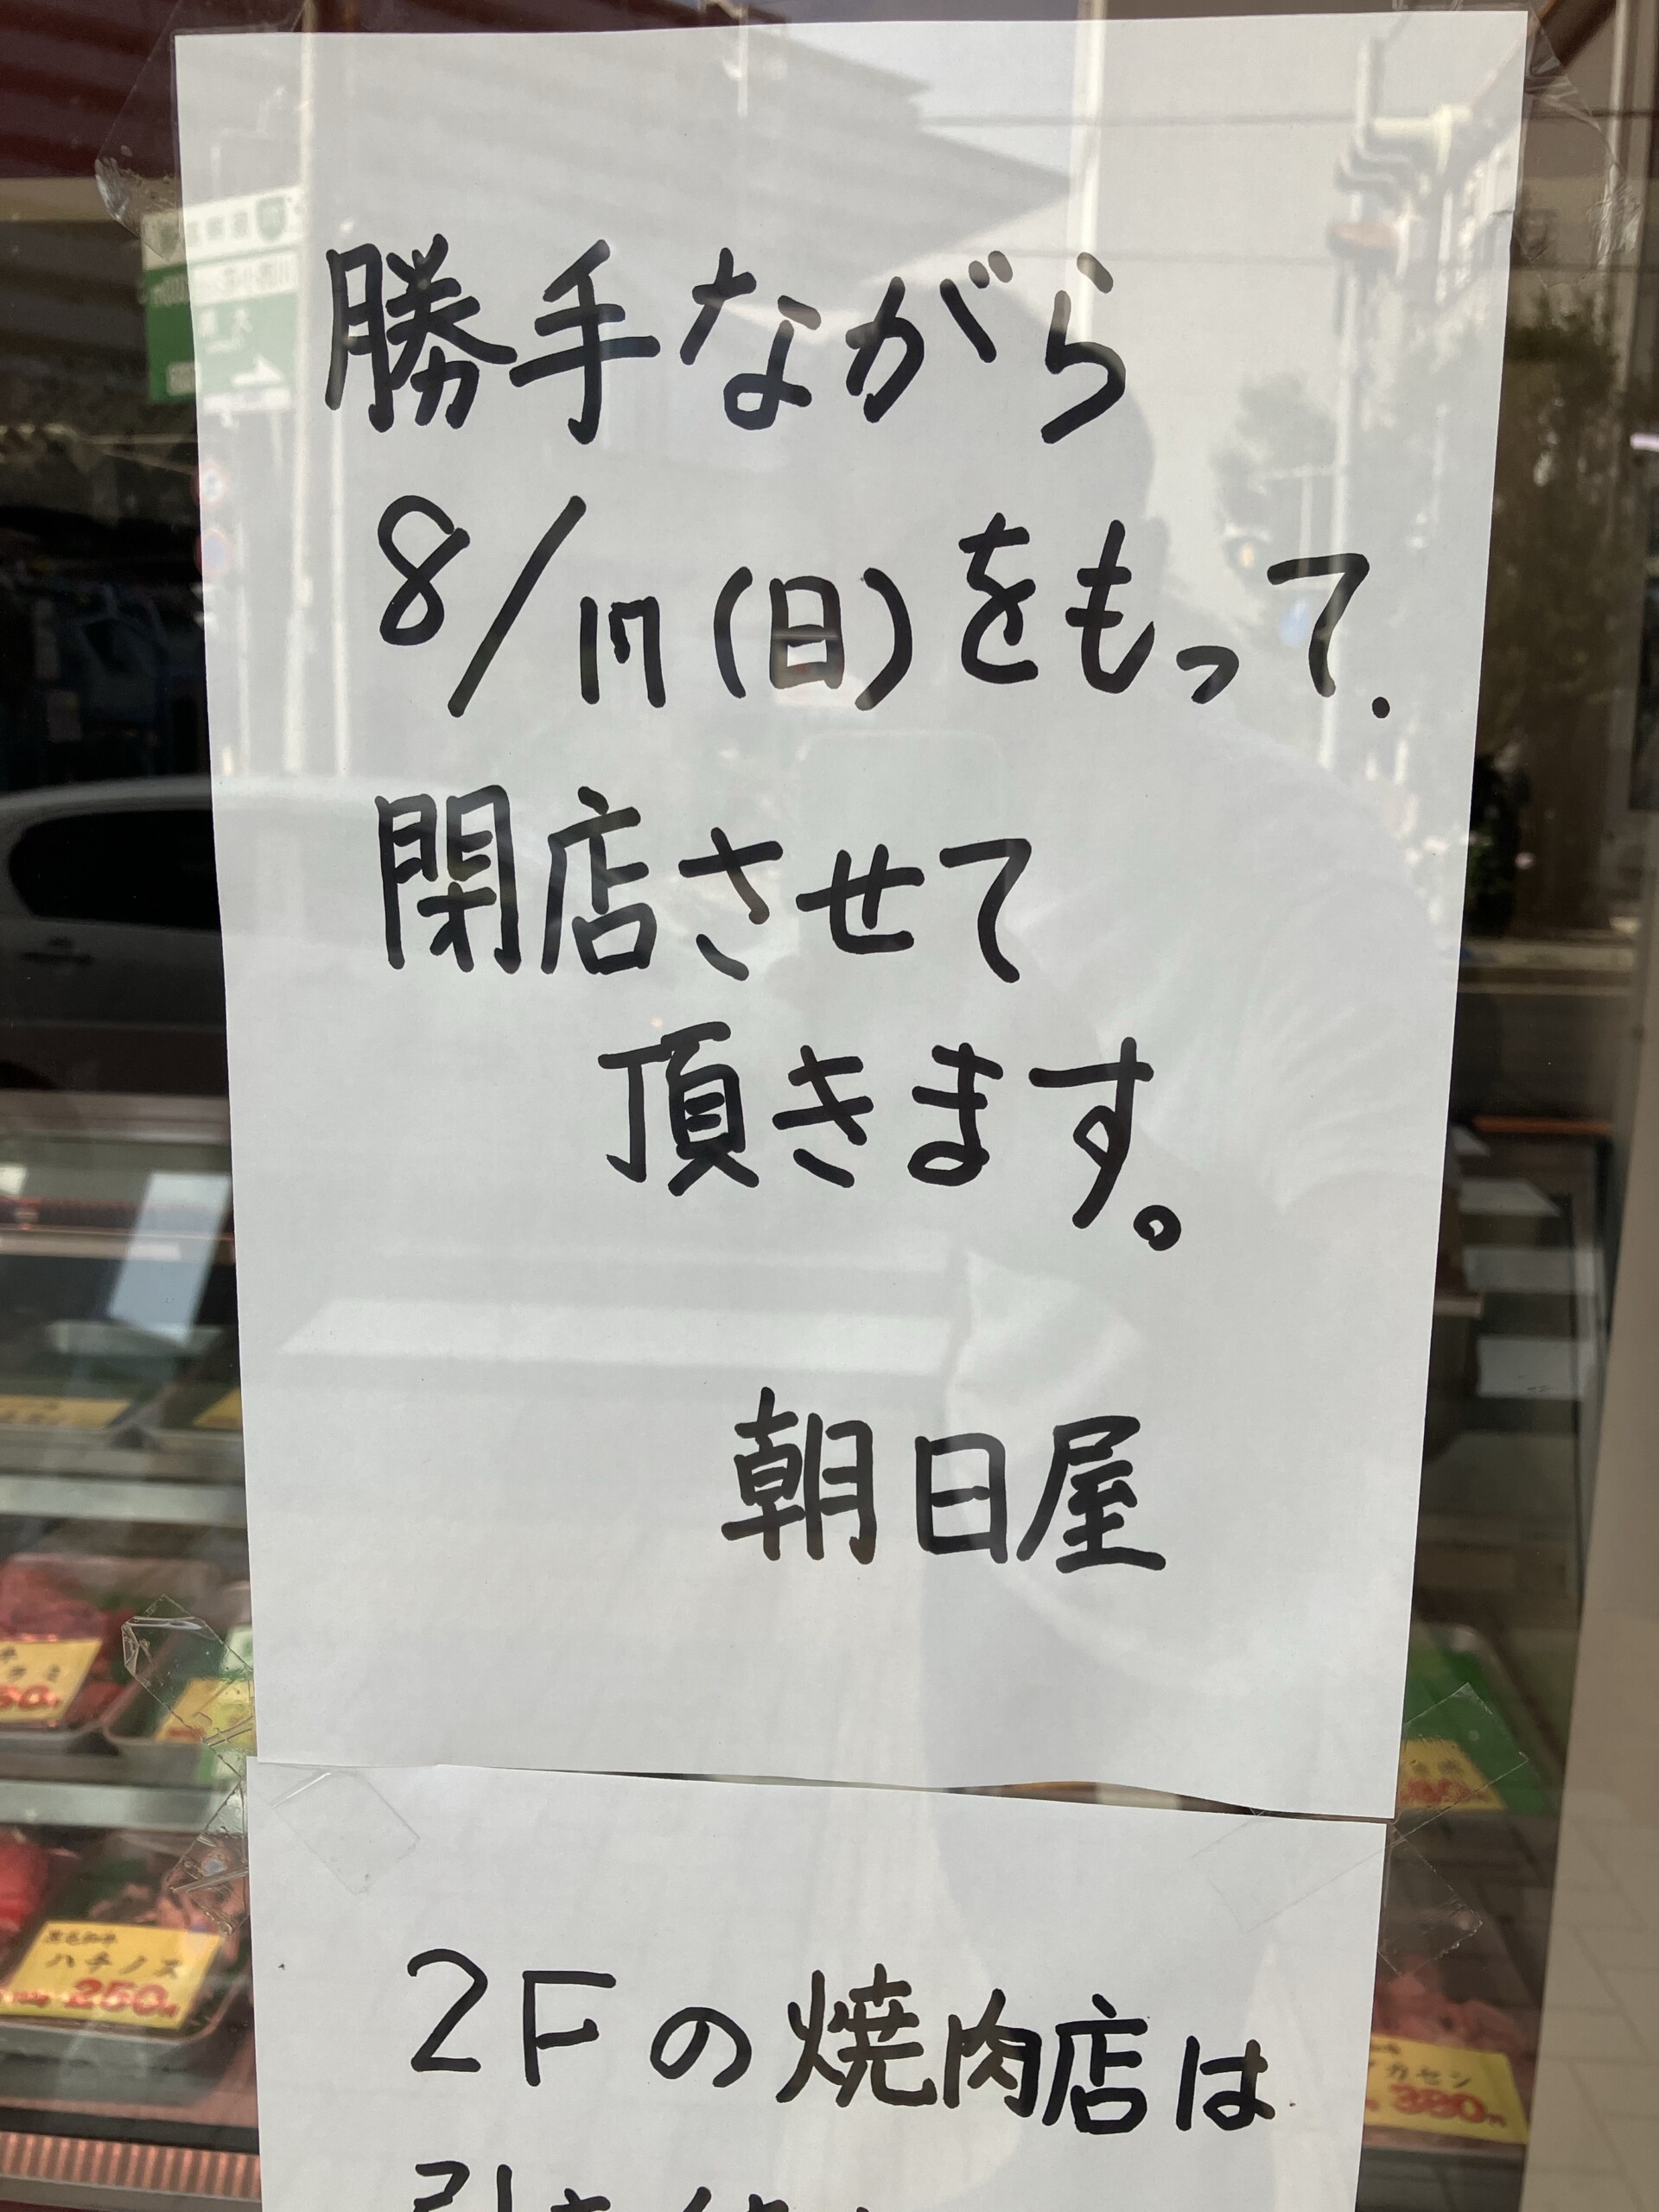 勝手ながら
8/17(日)をもって.
閉店させて
頂きます。
朝日屋
2Fの焼肉店は
引き続き
ハチノス
250円
カセン
380円